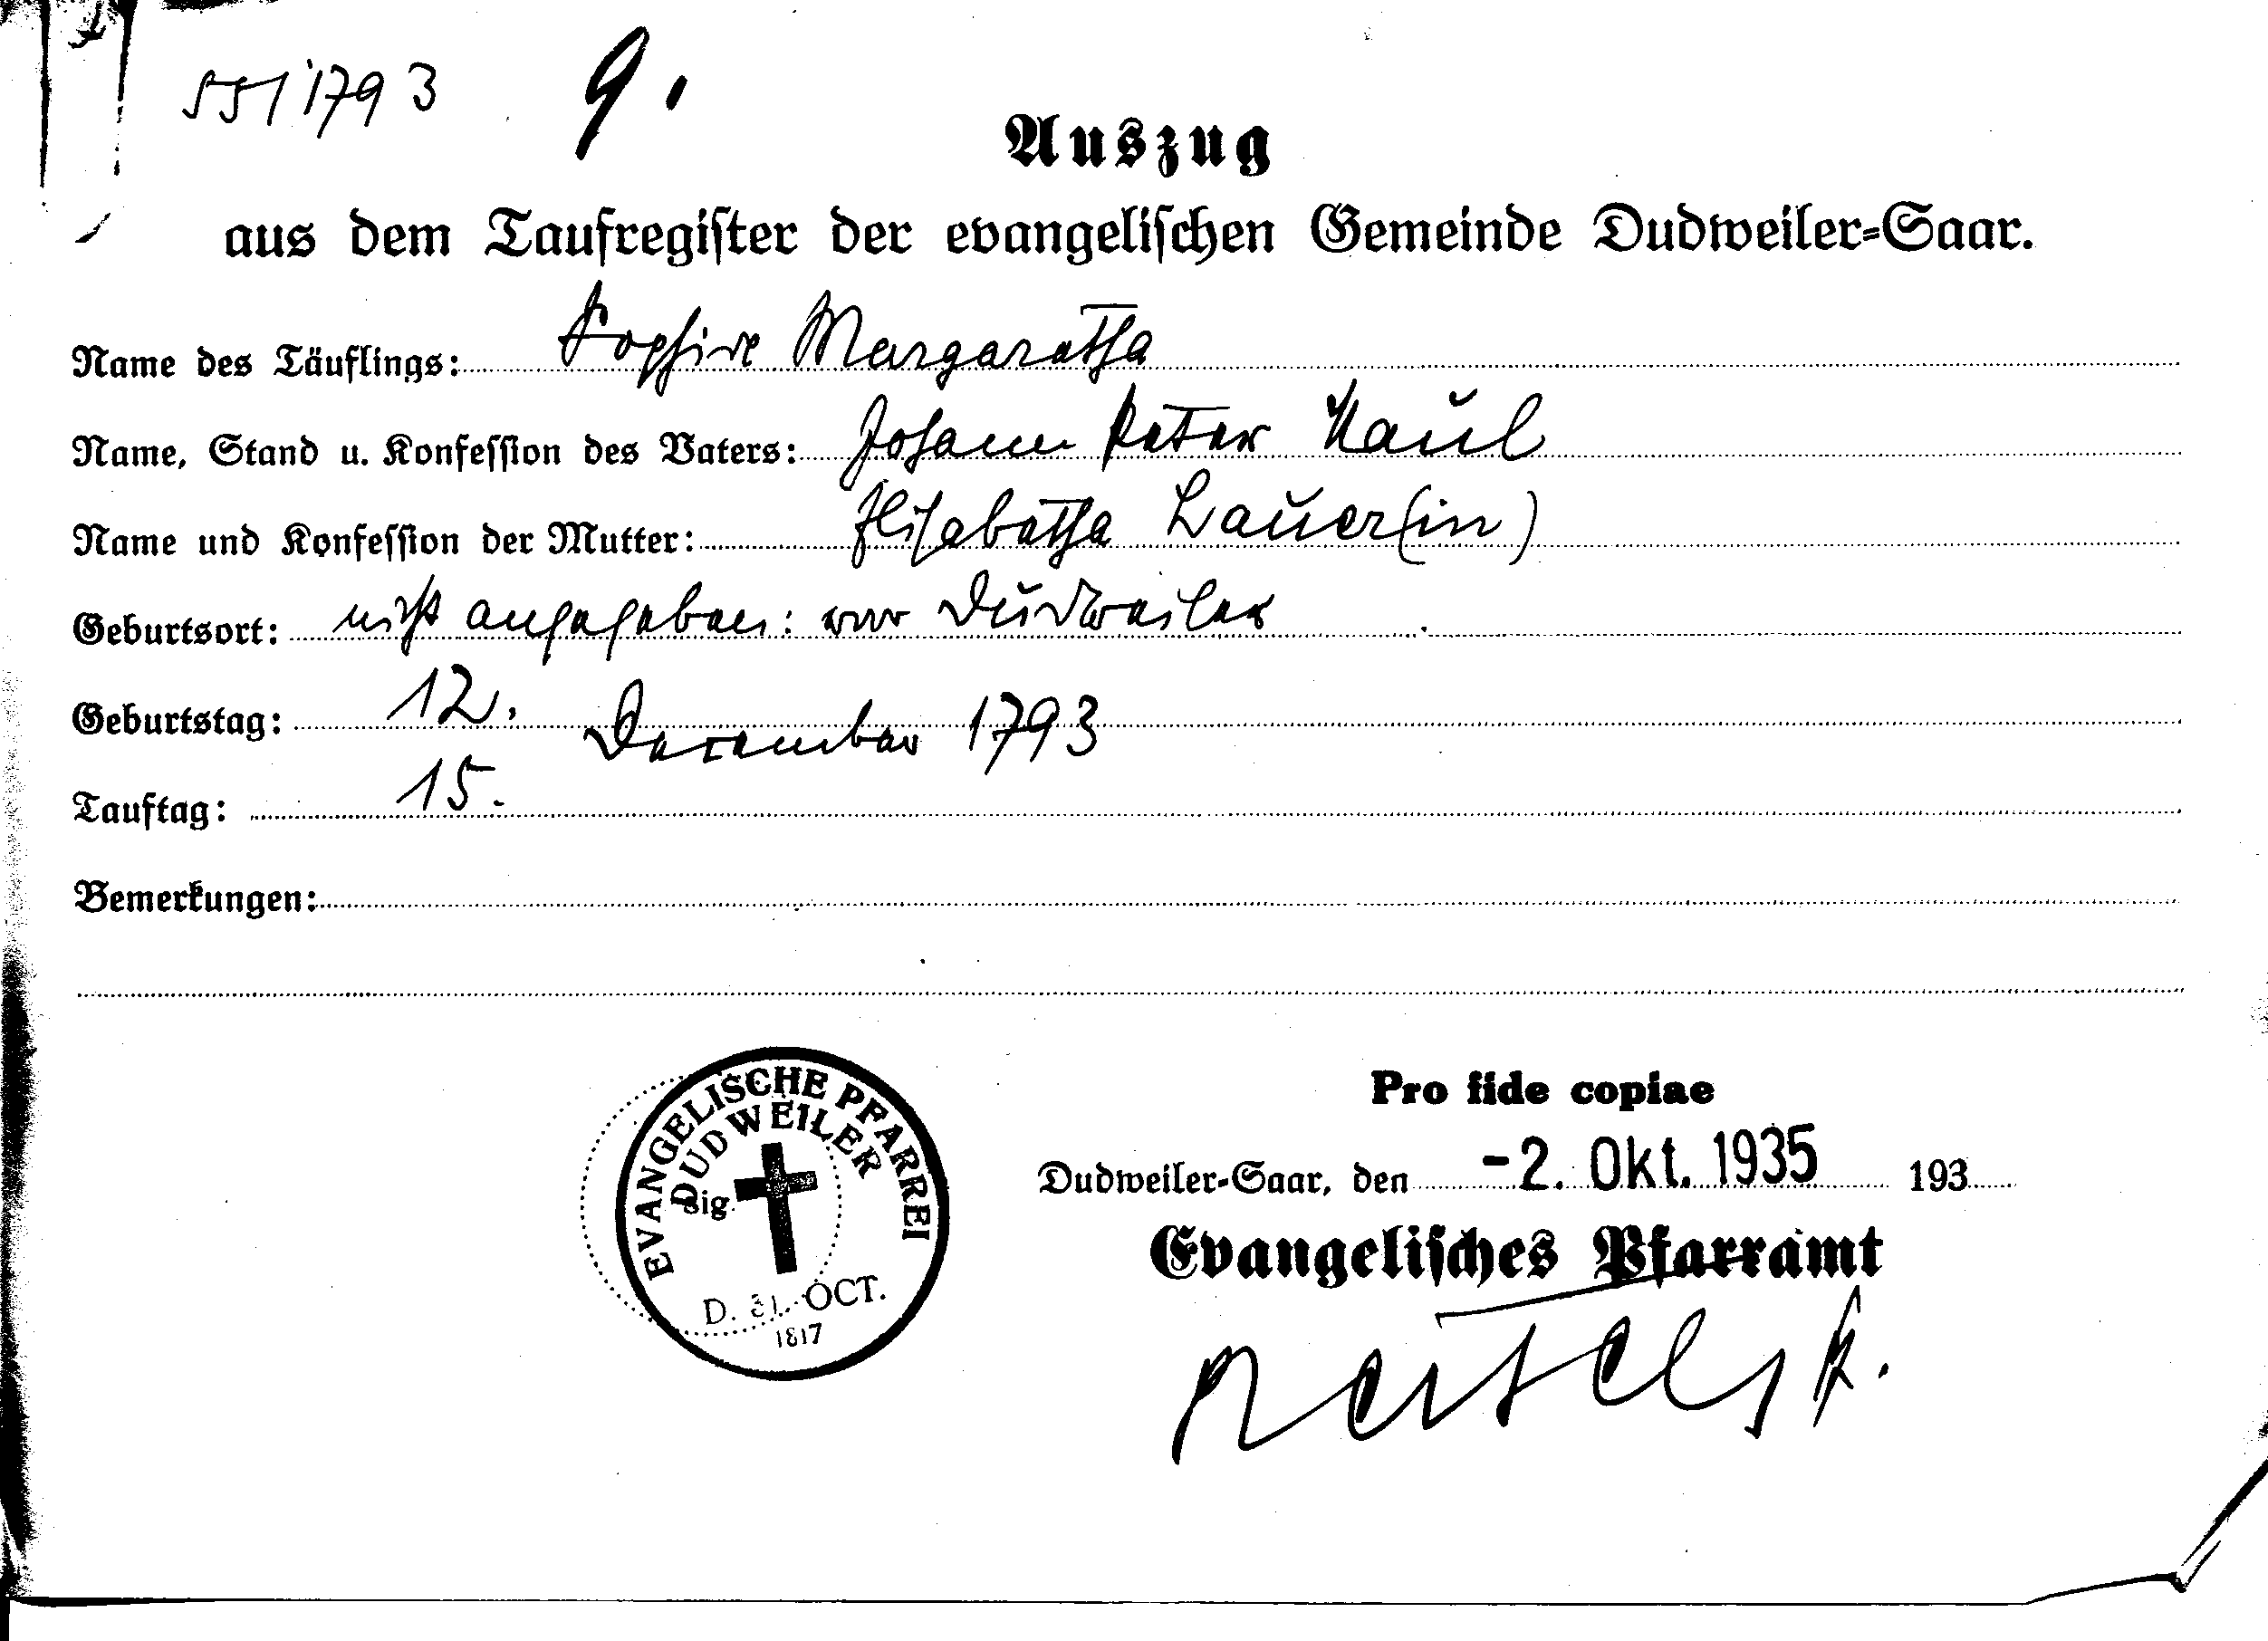 551 1793 9.
Auszug
aus dem Taufregister der evangelischen Gemeinde Dudweiler-Saar.
Name des Täuflings: Sophie Margaretha
Name, Stand u. Konfession des Vaters: Johann Peter Kaul
Name und Konfession der Mutter: Elisabetha Lauer(in)
Geburtsort: nicht angegeben: Dudweiler
Geburtstag: 12. December 1793
Tauftag: 15.
Bemerkungen:
EVANGELISCHE PFARREI
DUDWEILER
Sig.
D. 31. OCT.
1817
Pro fide copiae
Dudweiler-Saar, den -2. Okt. 1935 193
Evangelisches Pfarramt